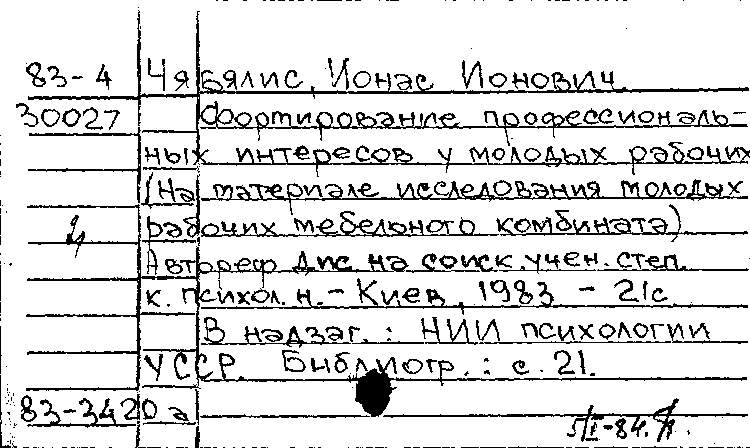 83-4 Чябялис, Ионас Ионович
30027 Формирование профессиональ-
ных интересов у молодых рабочих
(На материале исследования молодых
рабочих мебельного комбината)
Автореф дис. на соиск. учен. степ.
к. психол. н. - Киев, 1983 - 21с.
В надзаг.: НИИ психологии
УССР. Библиогр.: с. 21.
83-3420а
5/I-84.